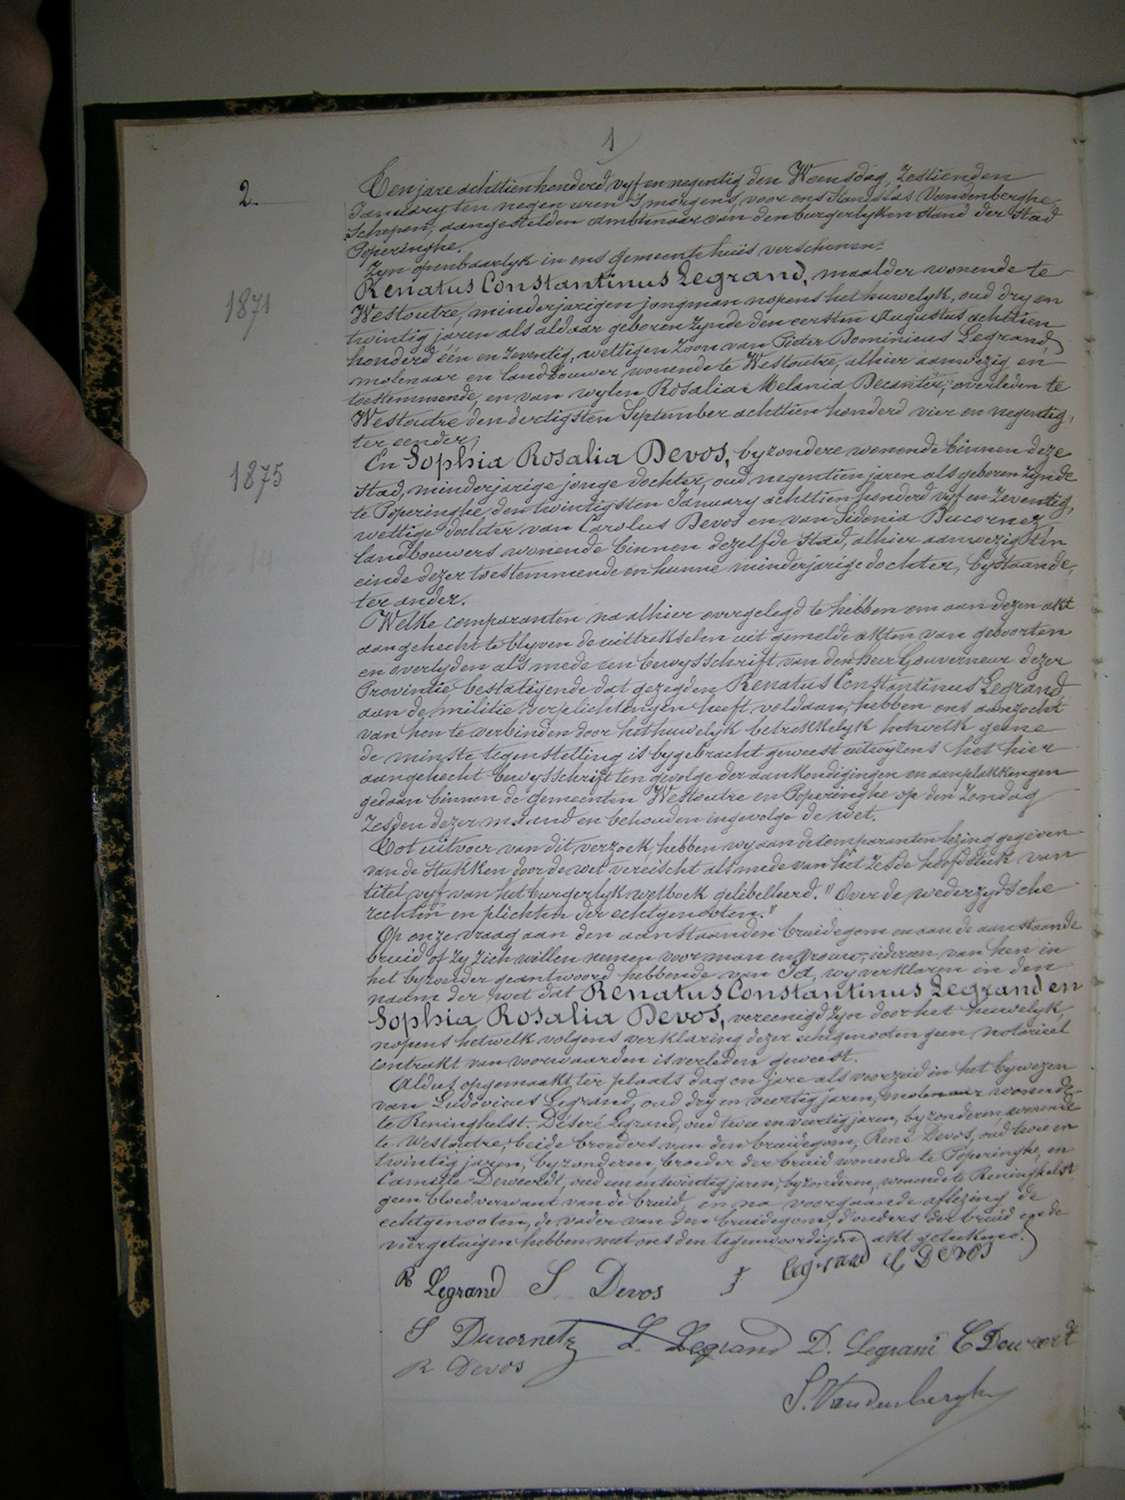 1
2.
Ten jare achttien honderd vyf en negentig den Woensdag, Zestienden
January ten negen uren 's morgens, voor ons Stanislas Vandenberghe
Schepen, aangestelden ambtenaar van den burgerlyken stand der stad
Poperinghe.
Zyn openbaarlyk in ons gemeentehuis verschenen:
Renatus Constantinus Legrand, maalder wonende te
1871
Westoutre, minderjarigen jongman nopens het huwelyk, oud dry en
twintig jaren als aldaar geboren zynde den eersten Augustus achttien
honderd één en zeventig, wettigen zoon van Pieter Dominicus Legrand,
molenaar en landbouwer wonende te Westoutre, alhier aanwezig en
toestemmende, en van wylen Rosalia Melania Decanter, overleden te
Westoutre den dertigsten September achttien honderd vier en negentig,
ter eender,
En Sophia Rosalia Devos, byzondere wonende binnen deze
1875
stad, minderjarige jonge dochter, oud negentien jaren als geboren zynde
te Poperinghe den twintigsten January achttien honderd vyf en zeventig,
wettige dochter van Carolus Devos en van Sidonia Ducornez,
landbouwers wonende binnen dezelfde stad, alhier aanwezig ten
einde dezer toestemmende en hunne minderjarige dochter, bystaande,
ter ander.
Welke comparanten na alhier overgelegd te hebben om aan dezen akt
aangehecht te blyven de uittrekselen uit gemelde akten van geboorten
en overlyden als mede een bewysschrift van den heer Gouverneur dezer
Provintie bestatigende dat gezegden Renatus Constantinus Legrand
aan de militie verplichtingen heeft voldaan, hebben ons aanzocht
van hen te verbinden door het huwelyk betrekkelyk hetwelk geene
de minste tegenstelling is bygebracht geweest uitwyzens het hier
aangehecht bewysschrift ten gevolge der aankondigingen en aanplakkingen
gedaan binnen de gemeenten Westoutre en Poperinghe op den Zondag
Zesden dezer maand en behouden ingevolge de wet.
Tot uitvoer van dit verzoek, hebben wy aan de comparanten lezing gegeven
van de stukken door de wet vereischt als mede van het zesde hoofdstuk van
titel vyf van het burgerlyk wetboek gelibelleerd: "Over de wederzydsche
rechten en plichten der echtgenooten."
Op onze vraag aan den aanstaanden bruidegom en aan de aanstaande
bruid of zy zich willen nemen voor man en vrouw, iedereen van hen in
het byzonder geantwoord hebbende van Ja, wy verklaren in den
naam der wet dat Renatus Constantinus Legrand en
Sophia Rosalia Devos, vereenigd zyn door het huwelyk,
nopens hetwelk volgens verklaring dezer echtgenooten geen notarieel
contrakt van voorwaarden is verleden geweest.
Aldus opgemaakt ter plaats dag en jare als voorzeid in het bywezen
van Ludovicus Legrand, oud dry en veertig jaren, molenaar wonende
te Reninghelst. Désiré Legrand, oud twee en veertig jaren, byzonderen wonende
te Westoutre, beide broeders van den bruidegom, René Devos, oud twee en
twintig jaren, byzonderen, broeder der bruid wonende te Poperinghe, en
Camille Deweerdt, oud een en twintig jaren, byzonderen, wonende te Reninghelst
geen bloedverwant van de bruid, en na voorgaande aflezing de
echtgenooten, de vader van den bruidegom, d'ouders der bruid en de
vier getuigen hebben met ons den tegenwoordigen akt geteekend.
R Legrand S Devos Legrand C Devos
S Ducornetz L. Legrand D. Legrand C Deweerdt
R Devos
S. Vandenberghe